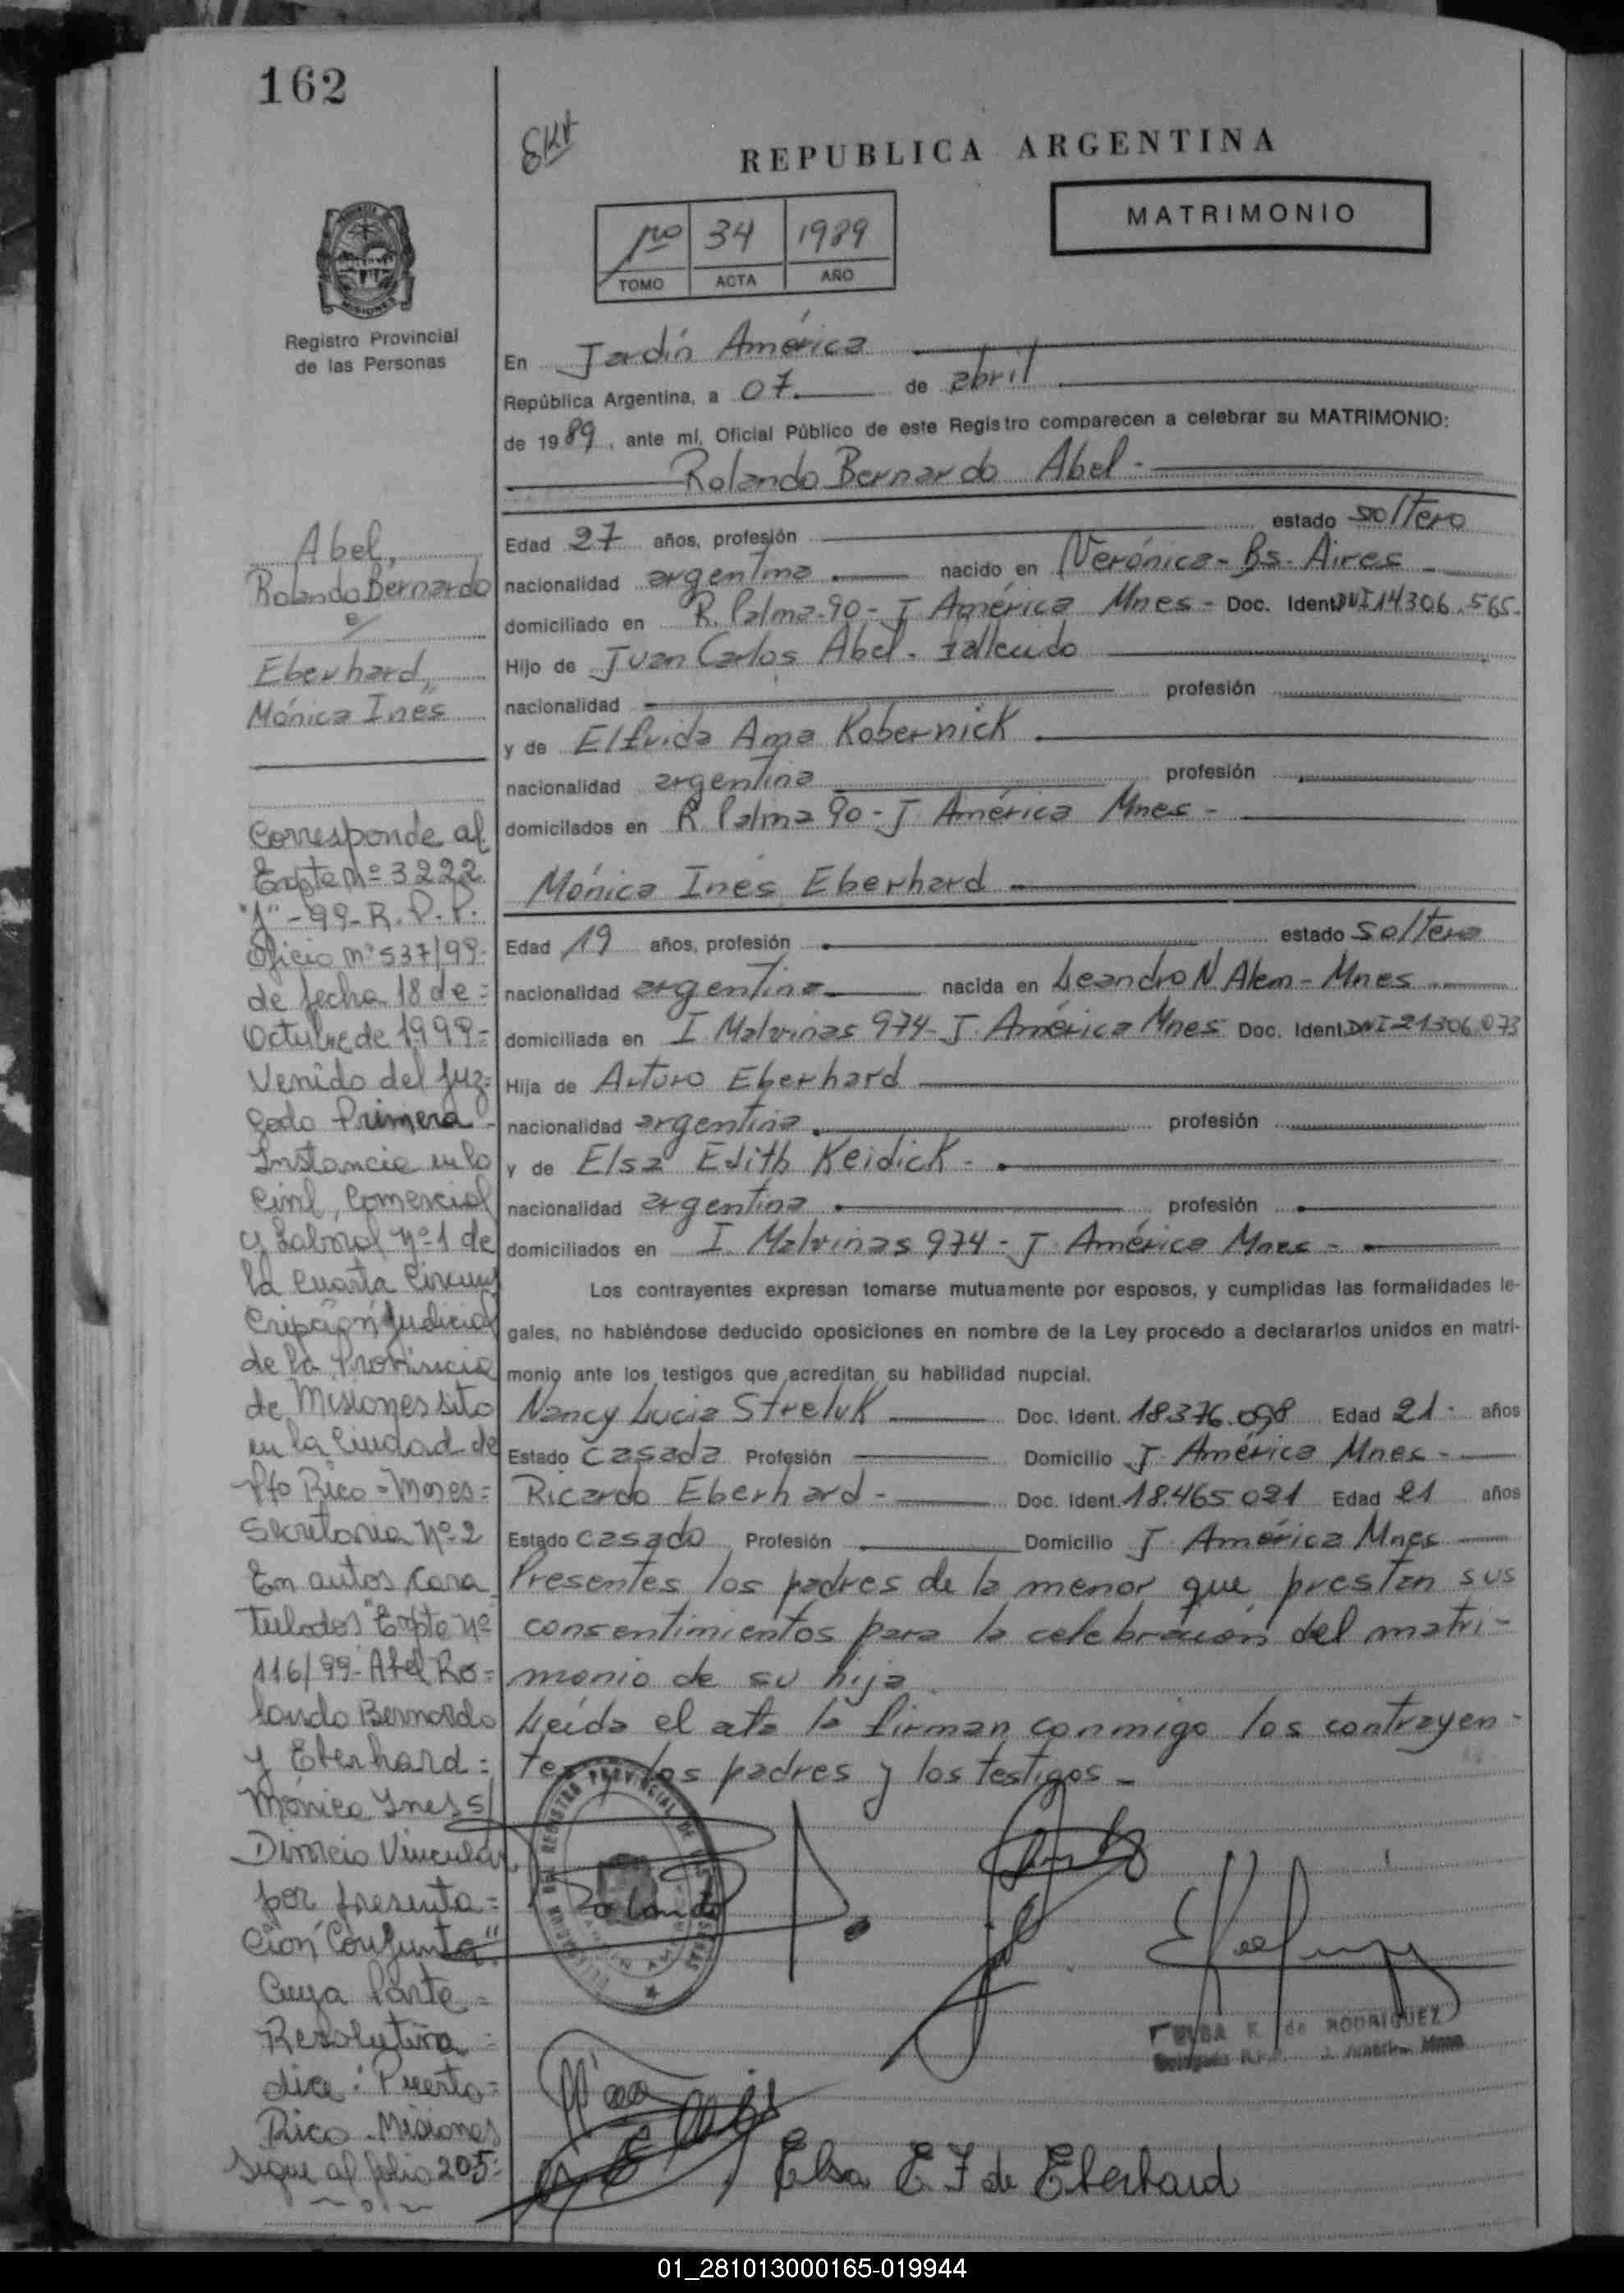 162
REPUBLICA ARGENTINA
MATRIMONIO
1º 34 1989
TOMO ACTA AÑO
MISIONES
Registro Provincial
de las Personas
En Jardín América
República Argentina, a 07 de abril
de 1989, ante mí, Oficial Público de este Registro comparecen a celebrar su MATRIMONIO:
Rolando Bernardo Abel -
Edad 27 años, profesión estado soltero
nacionalidad argentina nacido en Verónica - Bs. Aires
domiciliado en R. Palma 90 - J América Mnes - Doc. Ident. DNI 14306.565.
Hijo de Juan Carlos Abel - fallecido
nacionalidad profesión
y de Elfrida Ama Kobernick
nacionalidad argentina profesión
domicilados en R Palma 90 - J. América Mnes -
Mónica Inés Eberhard
Edad 19 años, profesión estado soltera
nacionalidad argentina nacida en Leandro N Alem - Mnes
domiciliada en I Malvinas 974 - J. América Mnes Doc. Ident. DNI 21306.073
Hija de Arturo Eberhard
nacionalidad argentina profesión
y de Elsa Edith Keidick -
nacionalidad argentina profesión
domiciliados en I. Malvinas 974 - J América Mnes -
Los contrayentes expresan tomarse mutuamente por esposos, y cumplidas las formalidades le-
gales, no habiéndose deducido oposiciones en nombre de la Ley procedo a declararlos unidos en matri-
monio ante los testigos que acreditan su habilidad nupcial.
Nancy Lucia Streluk Doc. Ident. 18.376.098 Edad 21 - años
Estado Casada Profesión Domicilio J. América Mnes -
Ricardo Eberhard - Doc. Ident. 18.465.021 Edad 21 años
Estado casado Profesión Domicilio J América Mnes
Presentes los padres de la menor que prestan sus
consentimientos para la celebración del matri-
monio de su hija
Leída el ata la firman conmigo los contrayen-
tes, los padres y los testigos -
Rolando
DE RODRIGUEZ
Elsa E J de Eberhard
Abel,
Rolando Bernardo
e/
Eberhard,
Mónica Inés
Corresponde al
Expte nº 3222
"J" - 99 - R. P. P.
Oficio nº 537/99 -
de fecha 18 de =
Octubre de 1999 =
Venido del Juz=
gado Primera
Instancia en lo
Civil, Comercial
y Laboral Nº 1 de
la Cuarta Circuns
cripción Judicial
de la Provincia
de Misiones sito
en la Ciudad de
Pto Rico - Mnes =
Secretaria Nº 2
En autos Cara
tulados "Expte Nº
116/99 - Abel Ro=
lando Bernardo
y Eberhard =
Mónica Ines s/
Divorcio Vincular
por presenta=
ción Conjunta"
Cuya Parte =
Resolutiva =
dice: "Puerto=
Rico - Misiones
Sigue al folio 205 =
01_281013000165-019944